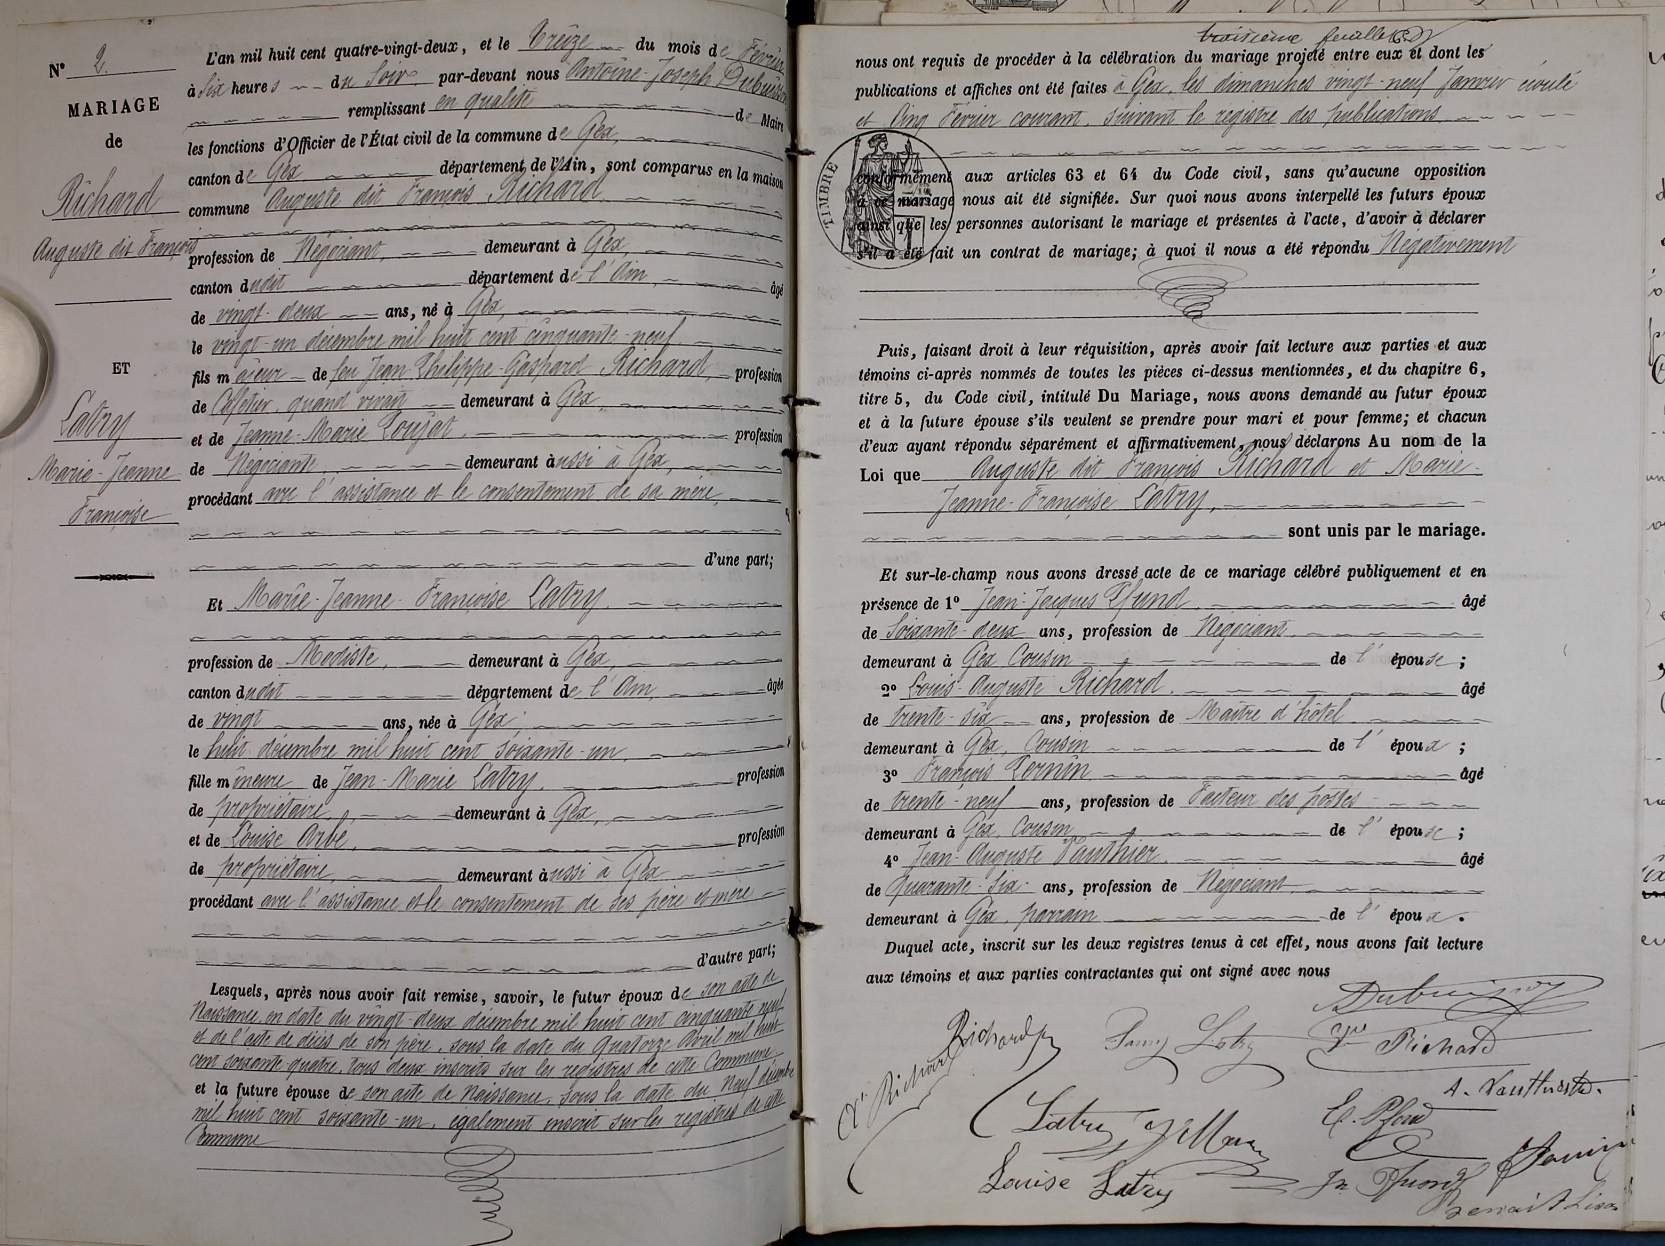 N° 2.
MARIAGE
de
Richard
Auguste dit François
ET
Latry
Marie-Jeanne
Françoise
L'an mil huit cent quatre-vingt-deux, et le Treize du mois de Février
à Six heures du Soir par-devant nous Antoine-Joseph Dubuisson
remplissant en qualité de Maire
les fonctions d'Officier de l'État civil de la commune de Gex,
canton de Gex département de l'Ain, sont comparus en la maison
commune Auguste dit François Richard
profession de Négociant, demeurant à Gex,
canton dudit département de l'Ain, âgé
de vingt-deux ans, né à Gex,
le vingt-un décembre mil huit cent cinquante-neuf
fils majeur de feu Jean Philippe-Gaspard Richard, profession
de Cafetier, quand vivait demeurant à Gex,
et de Jeanne-Marie profession
de Négociante, demeurant aussi à Gex,
procédant avec l'assistance et le consentement de sa mère,
d'une part;
Et Marie-Jeanne-Françoise Latry
profession de Modiste, demeurant à Gex,
canton dudit département de l'Ain, âgée
de vingt ans, née à Gex
le huit décembre mil huit cent soixante-un,
fille mineure de Jean-Marie Latry, profession
de propriétaire, demeurant à Gex,
et de Louise profession
de propriétaire, demeurant aussi à Gex
procédant avec l'assistance et le consentement de ses père et mère
d'autre part;
Lesquels, après nous avoir fait remise, savoir, le futur époux de son acte de
Naissance, en date du vingt-deux décembre mil huit cent cinquante neuf
et de l'acte de décès de son père, sous la date du Quatorze Avril mil huit
cent soixante quatre, tous deux inscrits sur les registres de cette Commune
et la future épouse de son acte de Naissance, sous la date du Neuf décembre
mil huit cent soixante-un, également inscrit sur les registres de cette
Commune
troisième feuillet
nous ont requis de procéder à la célébration du mariage projeté entre eux et dont les
publications et affiches ont été faites à Gex, les dimanches vingt-neuf Janvier écoulé
et Cinq Février courant, suivant le registre des publications
TIMBRE
conformément aux articles 63 et 64 du Code civil, sans qu'aucune opposition
à ce mariage nous ait été signifiée. Sur quoi nous avons interpellé les futurs époux
ainsi que les personnes autorisant le mariage et présentes à l'acte, d'avoir à déclarer
s'il a été fait un contrat de mariage; à quoi il nous a été répondu Négativement
Puis, faisant droit à leur réquisition, après avoir fait lecture aux parties et aux
témoins ci-après nommés de toutes les pièces ci-dessus mentionnées, et du chapitre 6,
titre 5, du Code civil, intitulé Du Mariage, nous avons demandé au futur époux
et à la future épouse s'ils veulent se prendre pour mari et pour femme; et chacun
d'eux ayant répondu séparément et affirmativement, nous déclarons Au nom de la
Loi que Auguste dit François Richard et Marie-
Jeanne-Françoise Latry,
sont unis par le mariage.
Et sur-le-champ nous avons dressé acte de ce mariage célébré publiquement et en
présence de 1° Jean-Jacques Pfund, âgé
de Soixante-deux ans, profession de Négociant,
demeurant à Gex Cousin de l'épouse;
2° Louis-Auguste Richard, âgé
de trente-six ans, profession de Maître d'hôtel
demeurant à Gex, Cousin de l'époux;
3° François Pernin âgé
de trente-neuf ans, profession de Facteur des postes
demeurant à Gex, Cousin de l'épouse;
4° Jean-Auguste Vauthier, âgé
de Quarante-Six ans, profession de Négociant,
demeurant à Gex, parrain de l'époux.
Duquel acte, inscrit sur les deux registres tenus à cet effet, nous avons fait lecture
aux témoins et aux parties contractantes qui ont signé avec nous
Dubuisson
Richard
Latry
Richard
Richard
Latry
Louise Latry